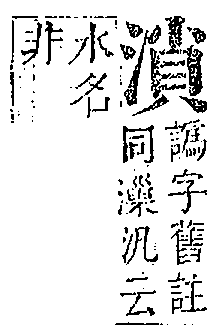 譌字舊註
同汎云
水名
非